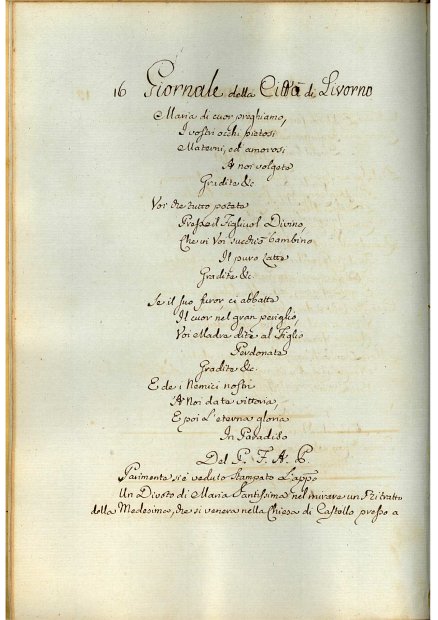 16 Giornale della Città di Livorno
Maria di cuor preghiamo,
I vostri occhi pietosi
Materni, ed amorosi
A noi volgete
Gradite &c.
Voi che tutto potete
Presso il Figliuol Divino,
Che vi Voi succhiò bambino
Il puro Latte
Gradite &c.
Se il suo furor, ci abbatte
Il cuor nel gran periglio,
Voi Madre dite al Figlio
Perdonate
Gradite &c.
E de i Nemici nostri
A Noi date vittoria,
E poi L'eterna gloria
In Paradiso
Del P. F. A. P.
Parimente si è veduto stampato L'appo
Un Divoto di Maria Santissima nel murare un Ritratto
della Medesima, che si venera nella Chiesa di Castello presso a